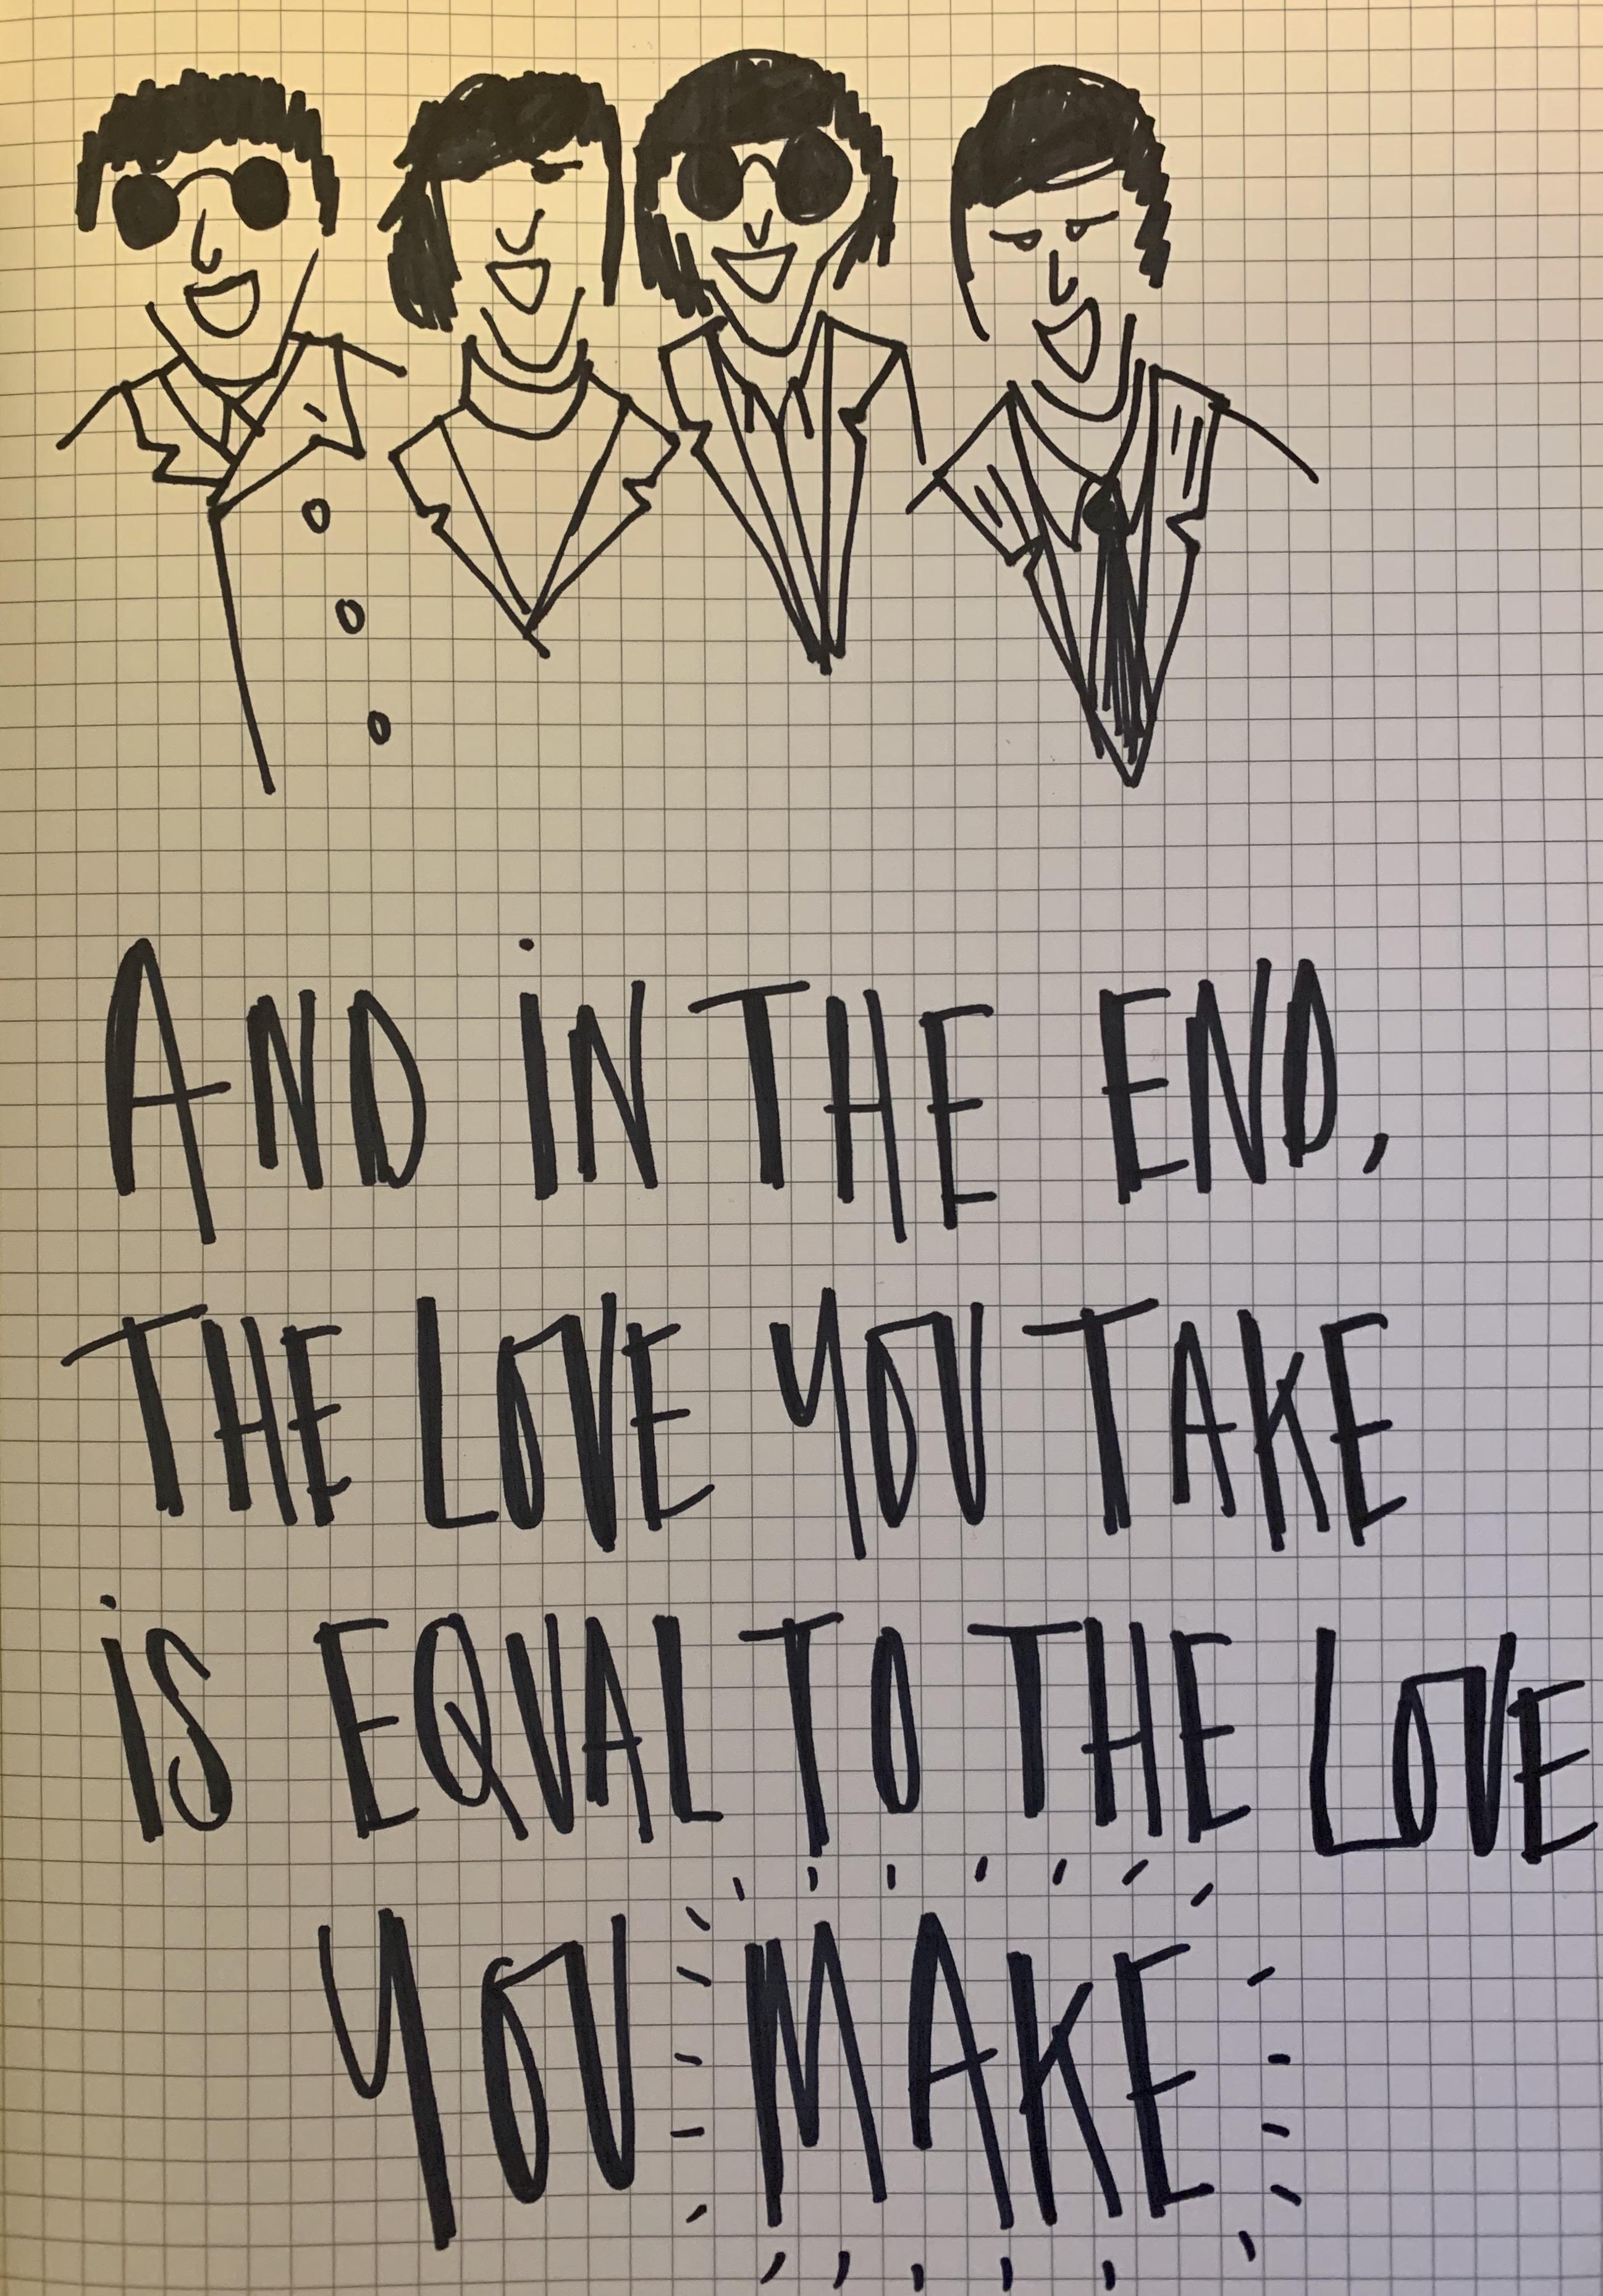 AND IN THE END,
THE LOVE YOU TAKE
IS EQUAL TO THE LOVE
YOU MAKE